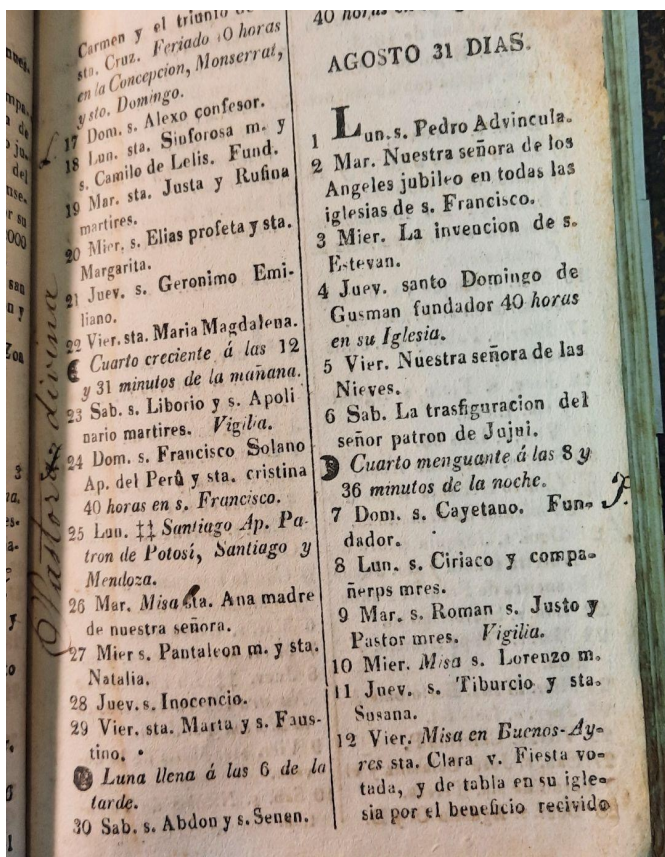 Carmen y el triunfo de
sta. Cruz. Feriado 40 horas
en la Concepcion, Monserrat,
y sto. Domingo.
17 Dom. s. Alexo confesor.
18 Lun. sta. Sinforosa m. y
s. Camilo de Lelis. Fund.
19 Mar. sta. Justa y Rufina
martires.
20 Mier. s. Elias profeta y sta.
Margarita.
21 Juev. s. Geronimo Emi-
liano.
22 Vier. sta. Maria Magdalena.
Cuarto creciente á las 12
y 31 minutos de la mañana.
23 Sab. s. Liborio y s. Apoli
nario martires. Vigilia.
24 Dom. s. Francisco Solano
Ap. del Perù y sta. cristina
40 horas en s. Francisco.
25 Lun. ‡‡ Santiago Ap. Pa-
tron de Potosí, Santiago y
Mendoza.
26 Mar. Misa sta. Ana madre
de nuestra señora.
27 Mier s. Pantaleon m. y sta.
Natalia.
28 Juev. s. Inocencio.
29 Vier. sta. Marta y s. Faus-
tino.
Luna llena á las 6 de la
tarde.
30 Sab. s. Abdon y s. Senen.
Pastora divina
40 horas
AGOSTO 31 DIAS.
1 Lun. s. Pedro Advincula.
2 Mar. Nuestra señora de los
Angeles jubileo en todas las
iglesias de s. Francisco.
3 Mier. La invencion de s.
Estevan.
4 Juev. santo Domingo de
Gusman fundador 40 horas
en su Iglesia.
5 Vier. Nuestra señora de las
Nieves.
6 Sab. La trasfiguracion del
señor patron de Jujui.
Cuarto menguante á las 8 y
36 minutos de la noche.
7 Dom. s. Cayetano. Fun-
dador.
8 Lun. s. Ciriaco y compa-
ñerps mres.
9 Mar. s. Roman s. Justo y
Pastor mres. Vigilia.
10 Mier. Misa s. Lorenzo m.
11 Juev. s. Tiburcio y sta.
Susana.
12 Vier. Misa en Buenos-Ay-
res sta. Clara v. Fiesta vo-
tada, y de tabla en su igle-
sia por el beneficio recivido